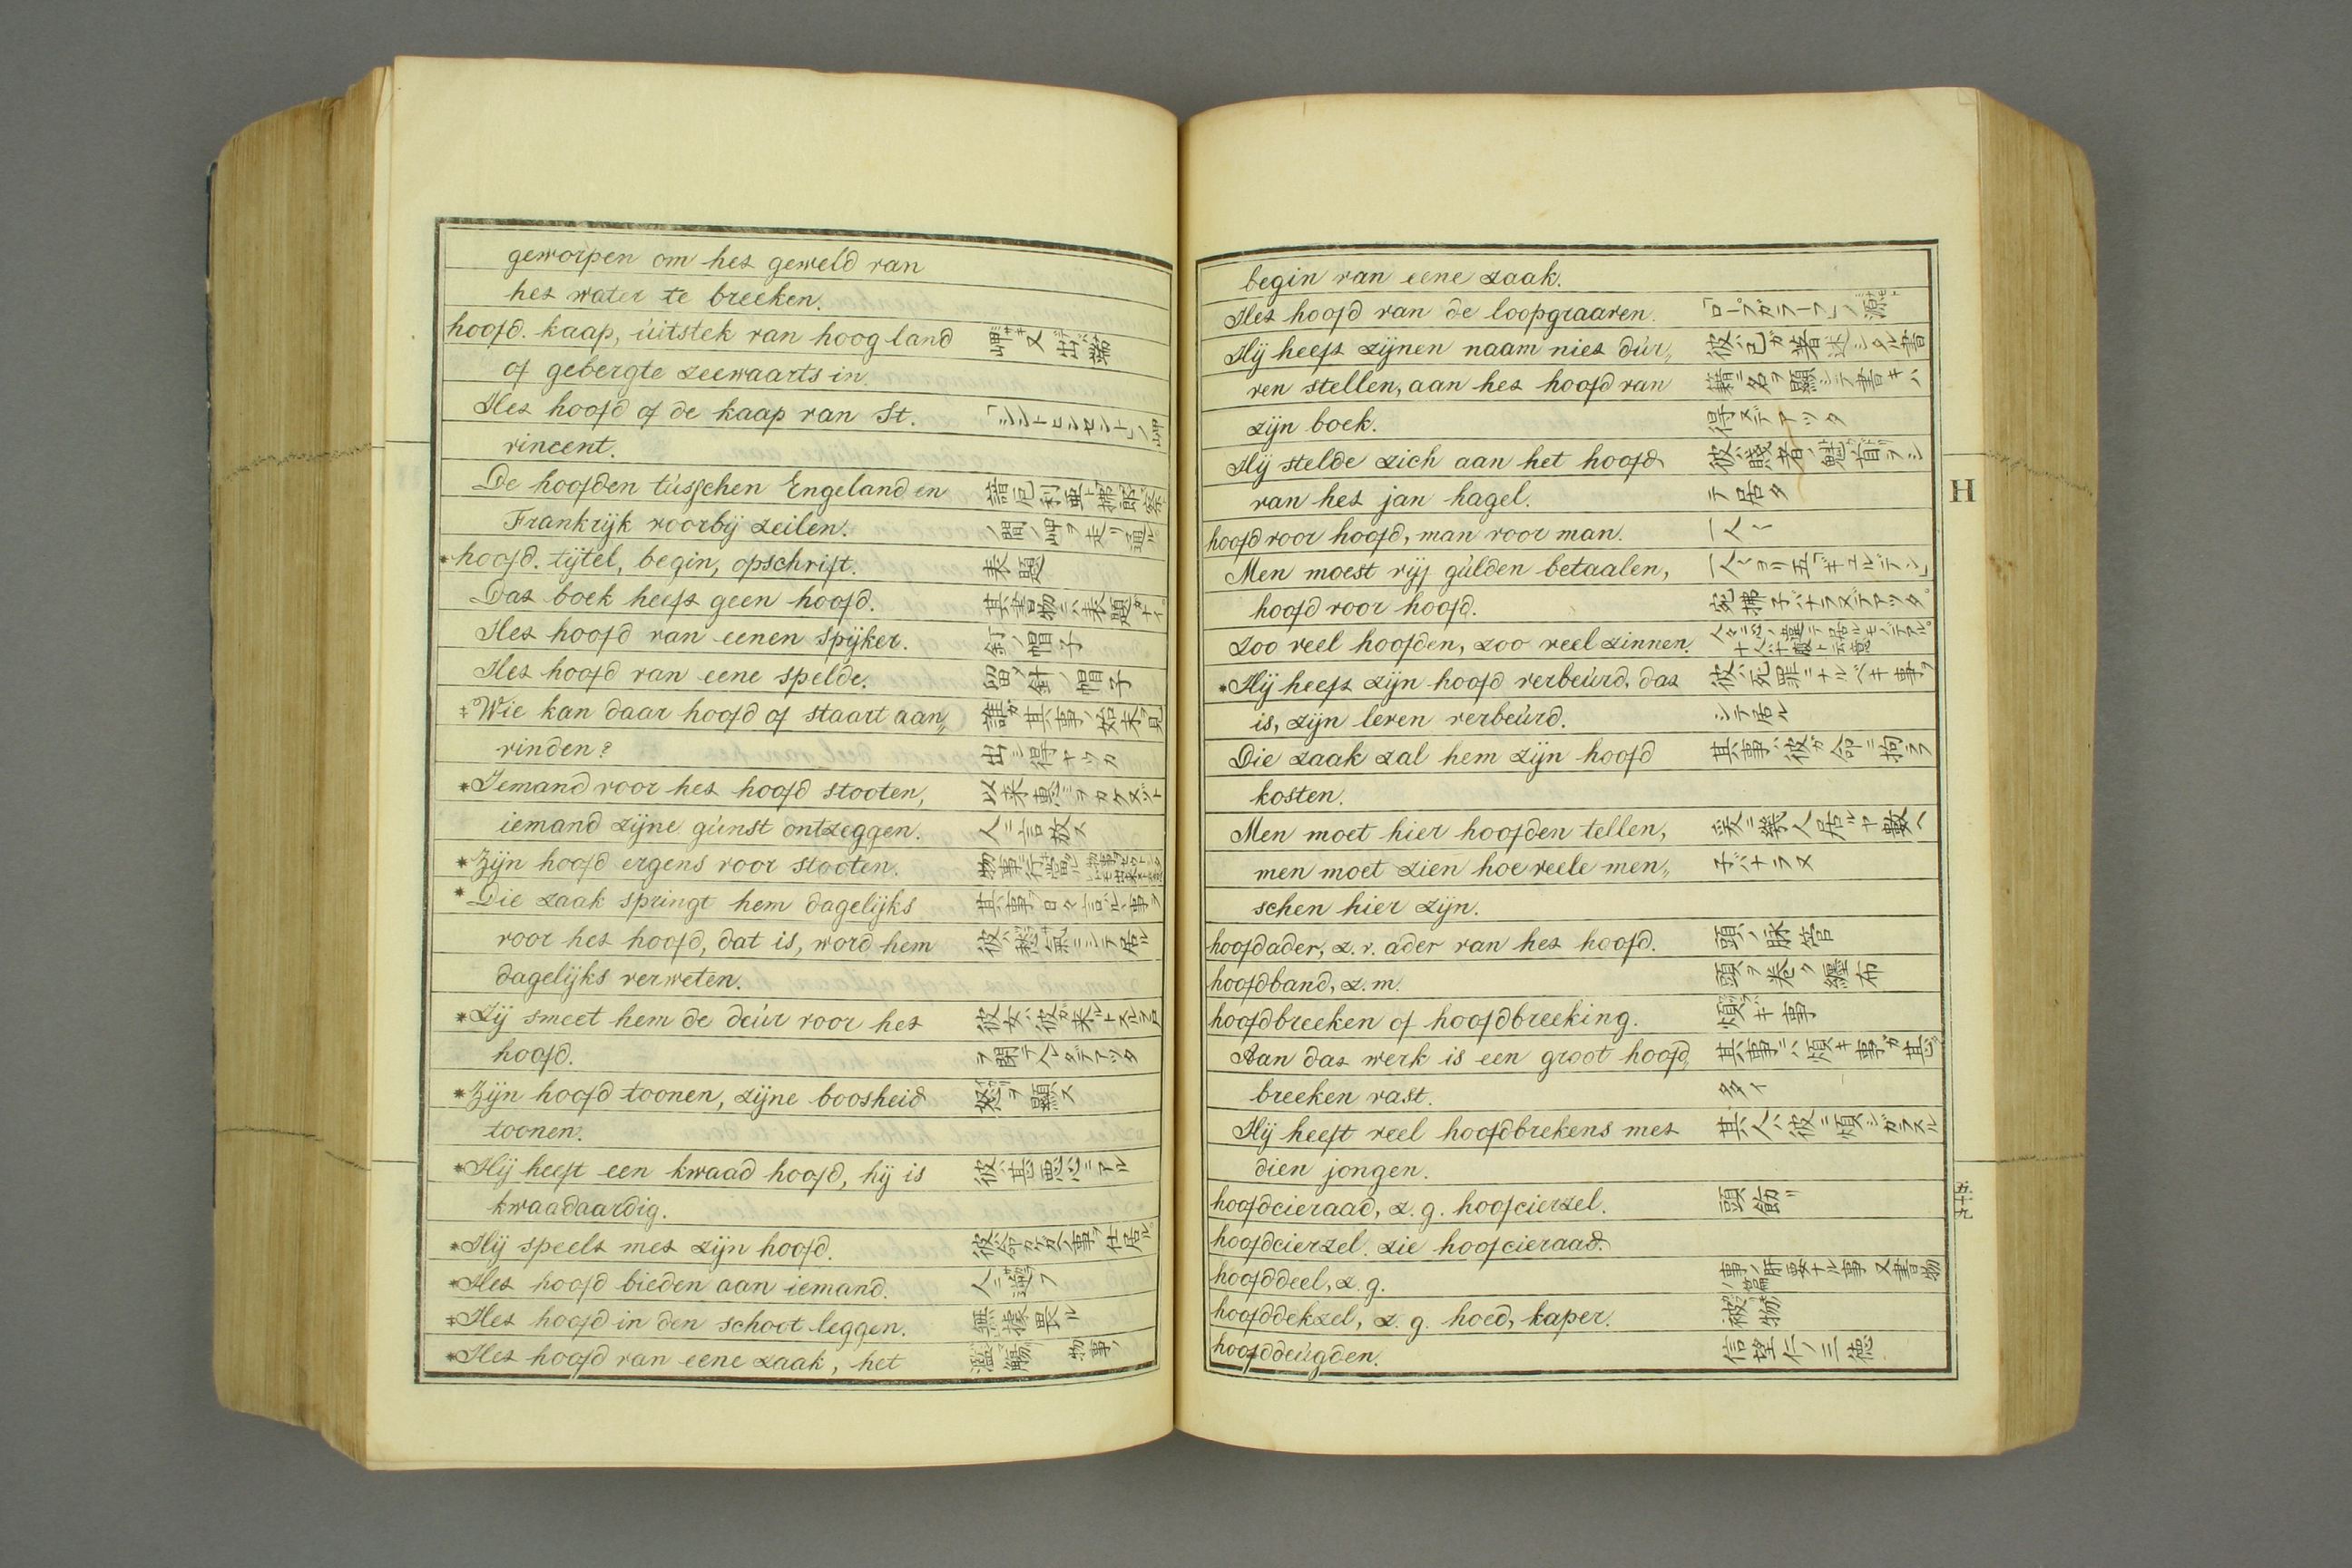 geworpen om het geweld van
het water te breeken.
hoofd. kaap, uitstek van hoog land 岬又出端
of gebergte zeewaarts in.
Het hoofd of de kaap van St. 「シントヒンセント」ノ岬
vincent.
De hoofden tusschen Engeland en 諳厄利亜ト拂郎察ト
Frankrijk voorbij zeilen. ノ間ノ岬ヲ走リ通ル
*hoofd. tijtel, begin, opschrift. 表題
Dat boek heeft geen hoofd. 其書物ニハ表題ガナイ。
Het hoofd van eenen spijker. 釘ノ帽子
Het hoofd van eene spelde. 留メ針ノ帽子
‡Wie kan daar hoofd of staart aan„ 誰ガ其事ノ始末ヲ見
vinden? 出シ得ヤツカ
*Iemand voor het hoofd stooten, 以来恵ミヲカケヌゾト
iemand zijne gunst ontzeggen. 人ニ言放ス
*Zijn hoofd ergens voor stooten. 物事行當ル
*Die zaak springt hem dagelijks 其事ヲ日々言ルヽ事ヲ
voor het hoofd, dat is, word hem 彼ハ愁氣ニシテ居ル
dagelijks verweten.
*Zij smeet hem de deur voor het 彼女ハ彼ガ来ルトスル戸
hoofd. ヲ閉テヘダテアツタ
*Zijn hoofd toonen, zijne boosheid 怒ヲ顯ス
toonen.
*Hij heeft een kwaad hoofd, hij is 彼ハ甚悪心ニアル
kwaadaardig.
*Hij speelt met zijn hoofd. 彼ハ命ガケノ事ヲ仕居ル。
*Het hoofd bieden aan iemand. 人ニ逆フ
‡Het hoofd in den schoot leggen. 無據畏ル
*Het hoofd van eene zaak, het 濫觴 物事ノ
begin van eene zaak.
Het hoofd van de loopgraaven. 「ロープガラーフ」ノ源
Hij heeft zijnen naam niet dur„ 彼ハ己ガ著述シタル書
ven stellen, aan het hoofd van 籍ニ名ヲ顯シテ書キハ
zijn boek. 得ズデアツタ
Hij stelde zich aan het hoofd 彼ハ賤者ノ魁首ヲシ
van het jan hagel. テ居タ
hoofd voor hoofd, man voor man. 一人〱
Men moest vijf gulden betaalen, 一人〱ヨリ五「ギユルデン」
hoofd voor hoofd. 宛拂子バナラズデアツタ。
Zoo veel hoofden, zoo veel zinnen. 人々ニ心ノ違テ居ルモノデアル。十人十腹ト云意
*Hij heeft zijn hoofd verbeurd, dat 彼ハ死罪ニナルベキ事ヲ
is, zijn leven verbeurd. シテ居ル
Die zaak zal hem zijn hoofd 其事ハ彼ガ命ニ拘ラフ
kosten.
Men moet hier hoofden tellen, 爰ニ幾人居ルヤ數ヘ
men moet zien hoe veele men„ 子バナラヌ
schen hier zijn.
hoofdader, z. v. ader van het hoofd. 頭ノ脉管
hoofdband, z. m. 頭ヲ巻ク纏布
hoofdbreeken of hoofdbreeking. 煩キ事
Aan dat werk is een groot hoofd„ 其事ニハ煩キ事ガ甚ダ
breeken vast. 多イ
Hij heeft veel hoofdbrekens met 其人ハ彼ニ煩シガラスル
dien jongen.
hoofdcieraad, z. g. hoofcierzel. 頭餝リ
hoofdcierzel. zie hoofcieraad.
hoofddeel, z. g. 事ノ肝要ナル事 又書物ノ篇
hoofddekzel, z. g. hoed, kaper. 被リ物
hoofddeugden. 信望仁ノ三德
H
五十九